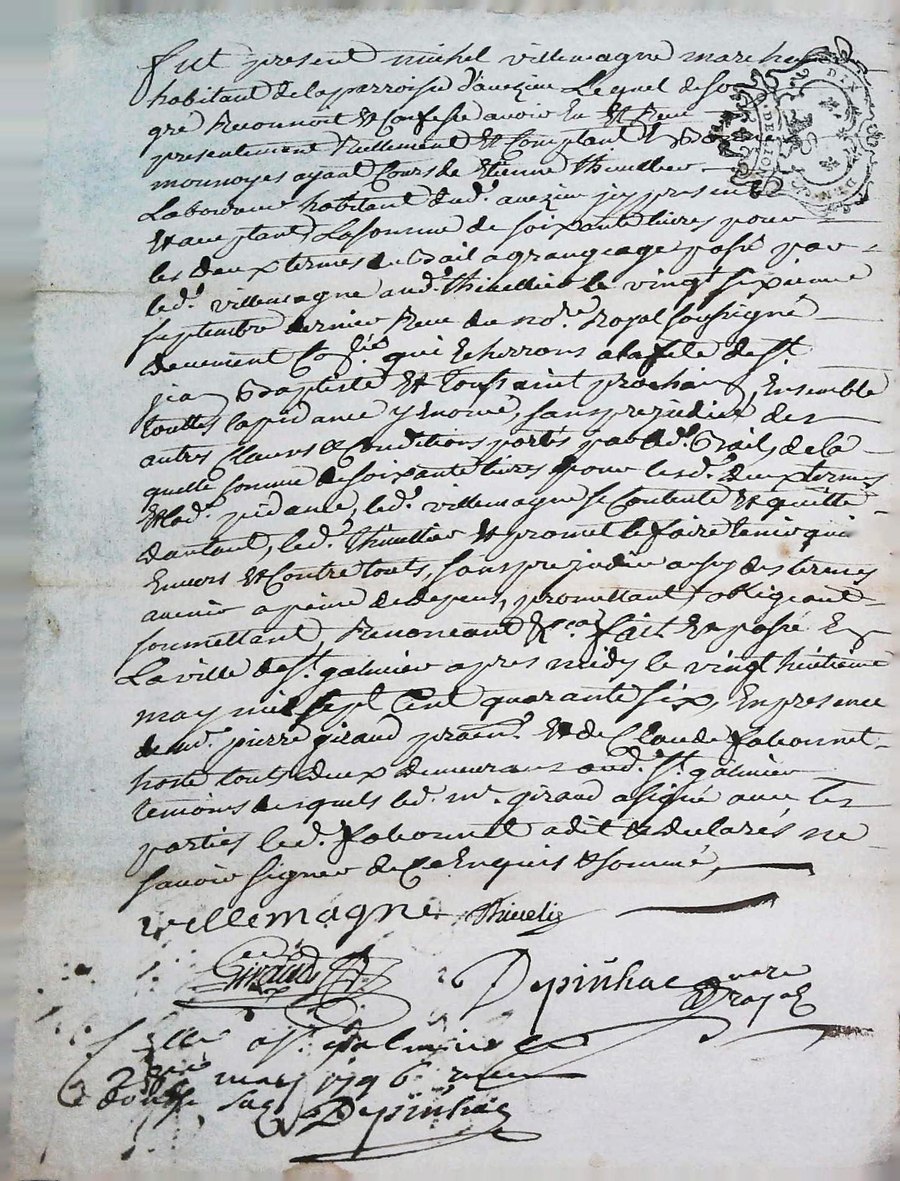 fut present michel villemagne march
habitant de la parroisse d'aveizieu Lequel de son
gré Reconnoit et Confesse avoir Eu et Receu
presentement Reellement et Comptant En
monnoyes ayant Cours de Etienne Thivellier
Laboureur habitant dud. aveizieu icy present
et acceptant La somme de soixante livres pour
les deux termes du bail a grangeage passé par
led. villemagne aud. Thivellier le vingt sixieme
septembre dernier Receu du nore. Royal soussigné
deuement qui Echerrons a la fete de St.
jean Baptiste et toussaint prochain, Ensemble
touttes la pidance y Enoncé, sans prejudice des
autres Clauses et Conditions portés par led. Bail, de la
quelle somme de soixante livres pour lesd. deux termes
et lad. pidance, led. villemagne se Contente et quitte
d'autant, led. Thivellier et promet le faire tenir quit
Envers et Contre touts, sans prejudice aussy des termes
avenir a peine de depens, promettant, obligeant
soumettant, Renonceant &ca. fait et passé En
La ville de St. galmier apres midy le vingt huitieme
may mil sept Cent quarante six, En presence
de mr. pierre giraud et de Claude fabonnet
hoste touts deux demeurans aud. St. galmier
temoins desquels led. mr. giraud a signé avec les
parties led. fabonnet a dit et declarés ne
savoir signer de Ce Enquis et sommé,
villemagne Thivelie
Giraud Depinhac nore
Royal
a St. galmier le
1746 Receu
douze sols Depinhac
DIX DEN
DE LION